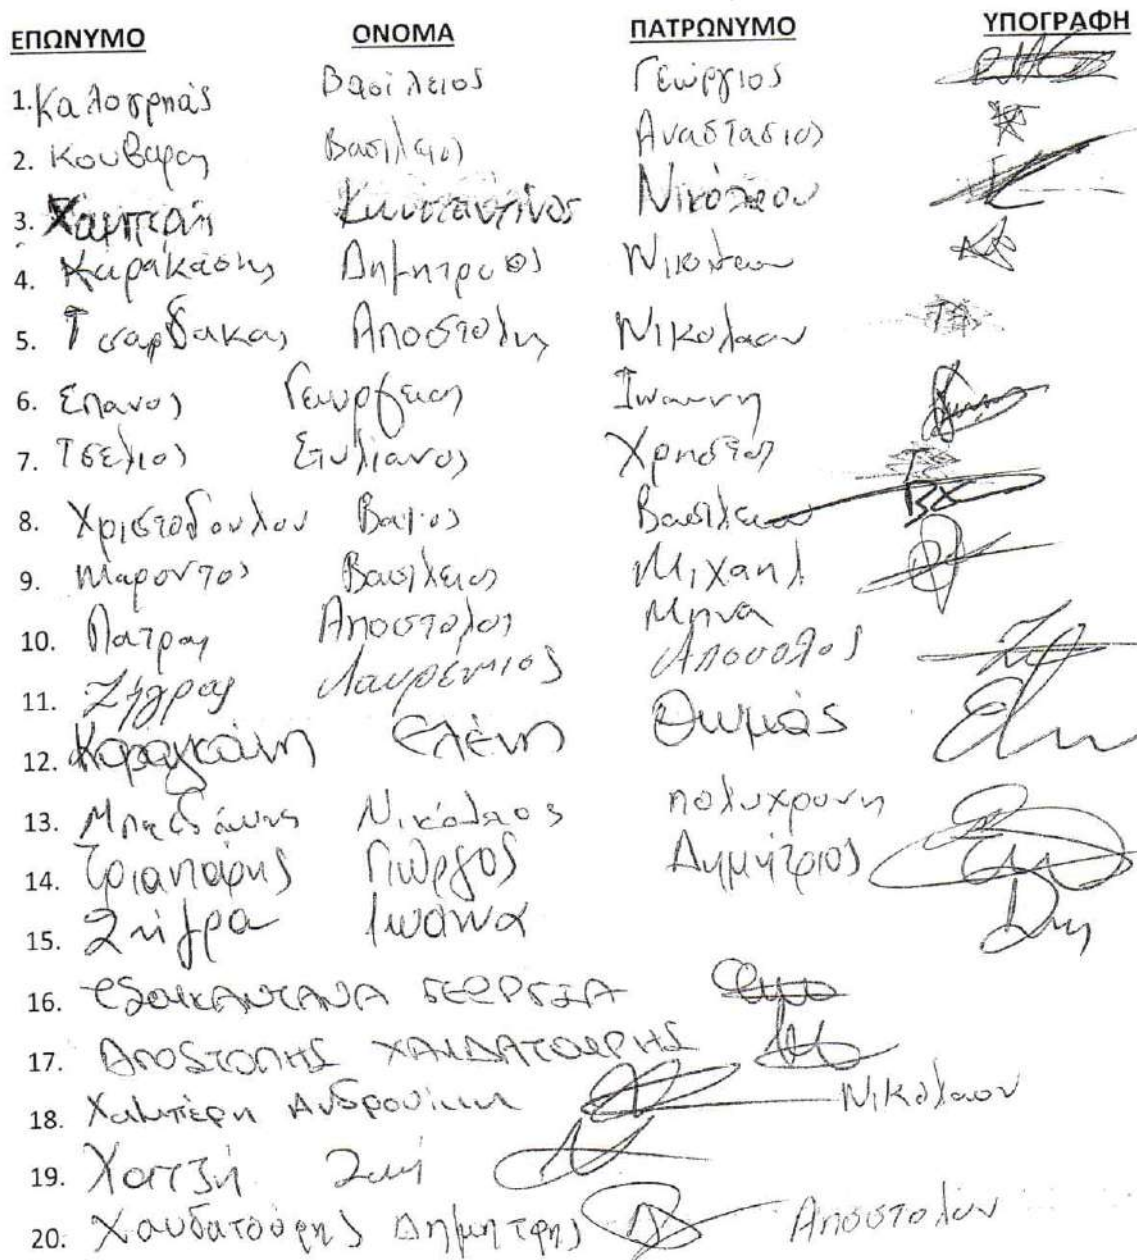 ΕΠΩΝΥΜΟ ΟΝΟΜΑ ΠΑΤΡΩΝΥΜΟ ΥΠΟΓΡΑΦΗ
1. Καλογρηάς Βασίλειος Γεώργιος
2. Κουβαρας Βασιλειος Αναστασιος
3. Χαμπερη Κωνσταντίνος Νικόλαου
4. Καρακάσης Δημητριος Νικολαου
5. Τσαρδακας Αποστολης Νικολαου
6. Σπανος Γεωργιος Ιωαννη
7. Τσελιος Στυλιανος Χρηστος
8. Χριστοδουλου Βαιος Βασιλειου
9. Μαροντος Βασιλειος Μιχαηλ
10. Πατρας Αποστολος Μηνα
11. Ζήγρας Λαυρέντιος
12. Καραγκούνη Ελένη Θωμάς
13. Νικόλαος πολυχρονη
14. Γιώργος Δημήτριος
15. Ζήγρα Ιωάννα
16. ΓΕΩΡΓΙΑ
17. ΑΠΟΣΤΟΛΗΣ ΧΑΙΔΑΤΟΥΡΗΣ
18. Χαμπέρη Ανδρονίκη Νικολαου
19. Χατζή Ζωή
20. Χαυδατούρης Δημητρης Αποστολου